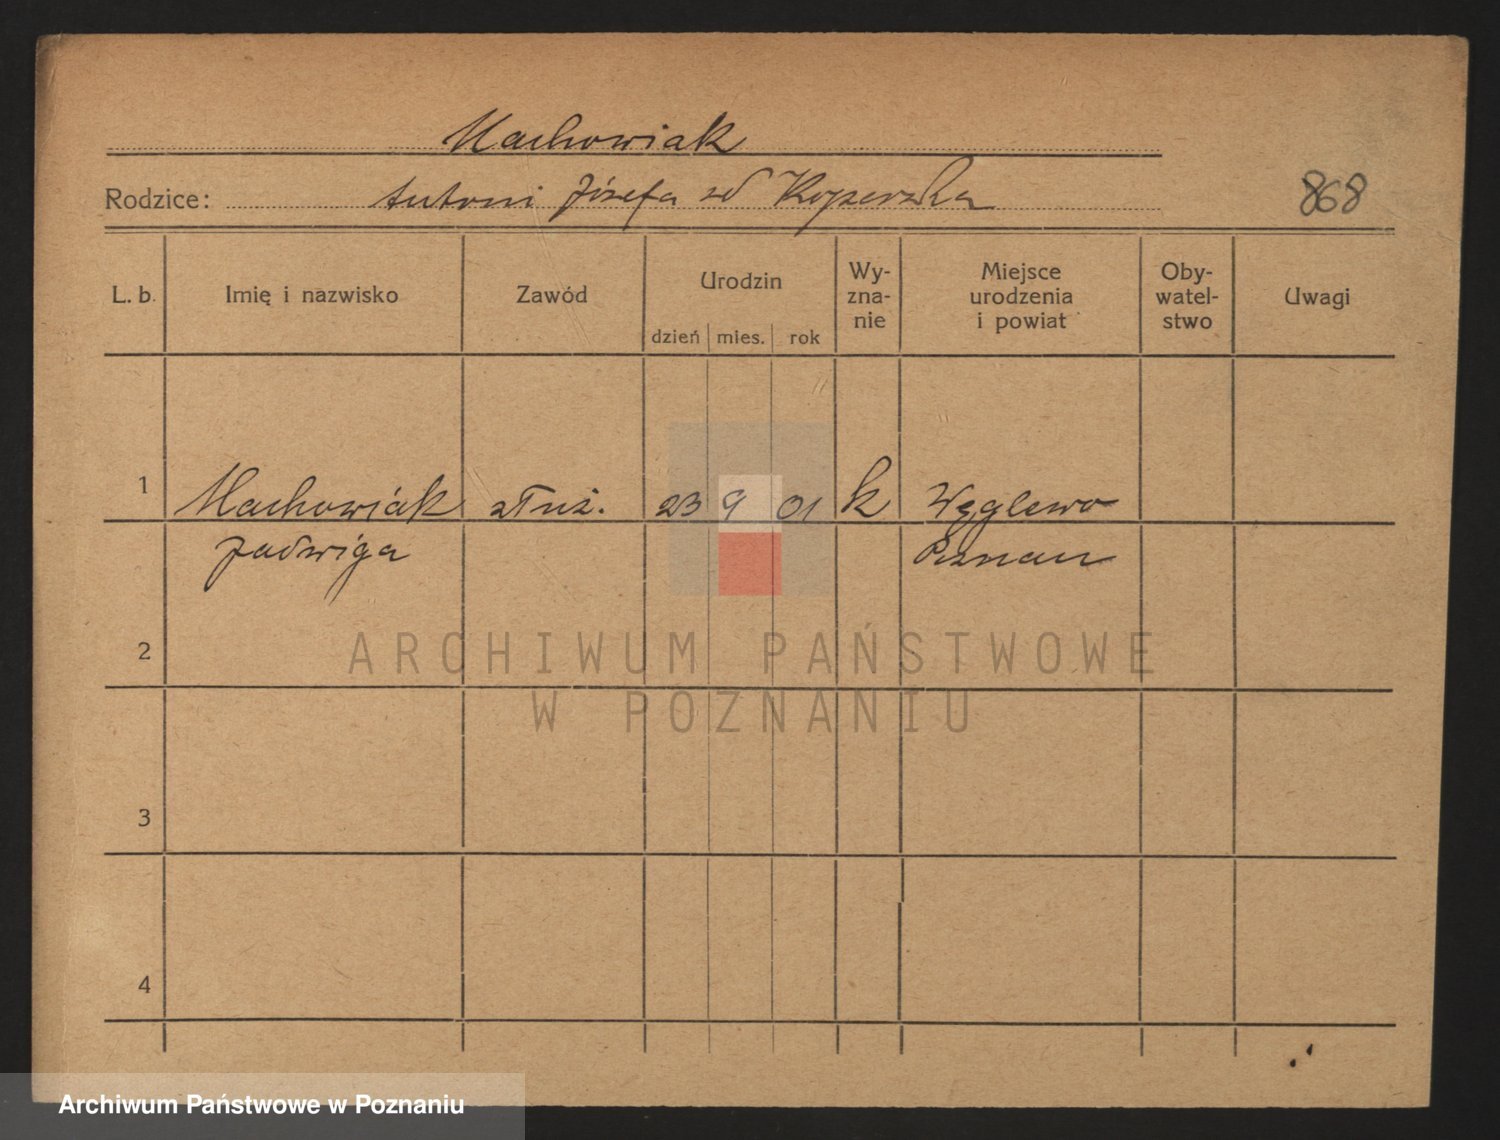 Machowiak
Rodzice: Antoni Józefa zd
868
L. b. Imię i nazwisko Zawód Urodzin dzień mies. rok Wy-zna-nie Miejsce urodzenia i powiat Oby-watel-stwo Uwagi
1 Machowiak służ. 23 9 01 k Węglewo
Jadwiga Poznań
2
3
4
ARCHIWUM PAŃSTWOWE
W POZNANIU
Archiwum Państwowe w Poznaniu